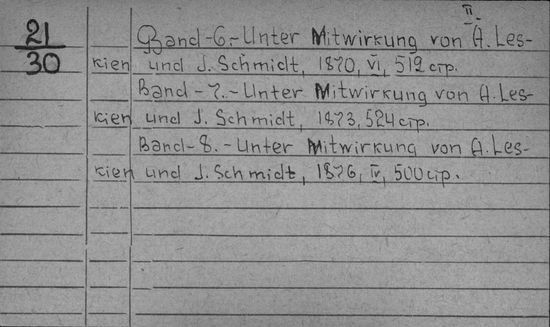 II
21
30
Band-6.-Unter Mitwirkung von A. Les-
kien und J. Schmidt, 1870, VI, 512 стр.
Band-7.-Unter Mitwirkung von A. Les-
kien und J. Schmidt, 1873, 524 стр.
Band-8.-Unter Mitwirkung von A. Les-
kien und J. Schmidt, 1876, IV, 500 стр.